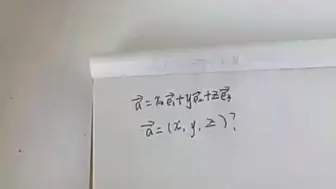 a⃗ = xe⃗₁ + ye⃗₂ + ze⃗₃
a⃗ = (x, y, z)?